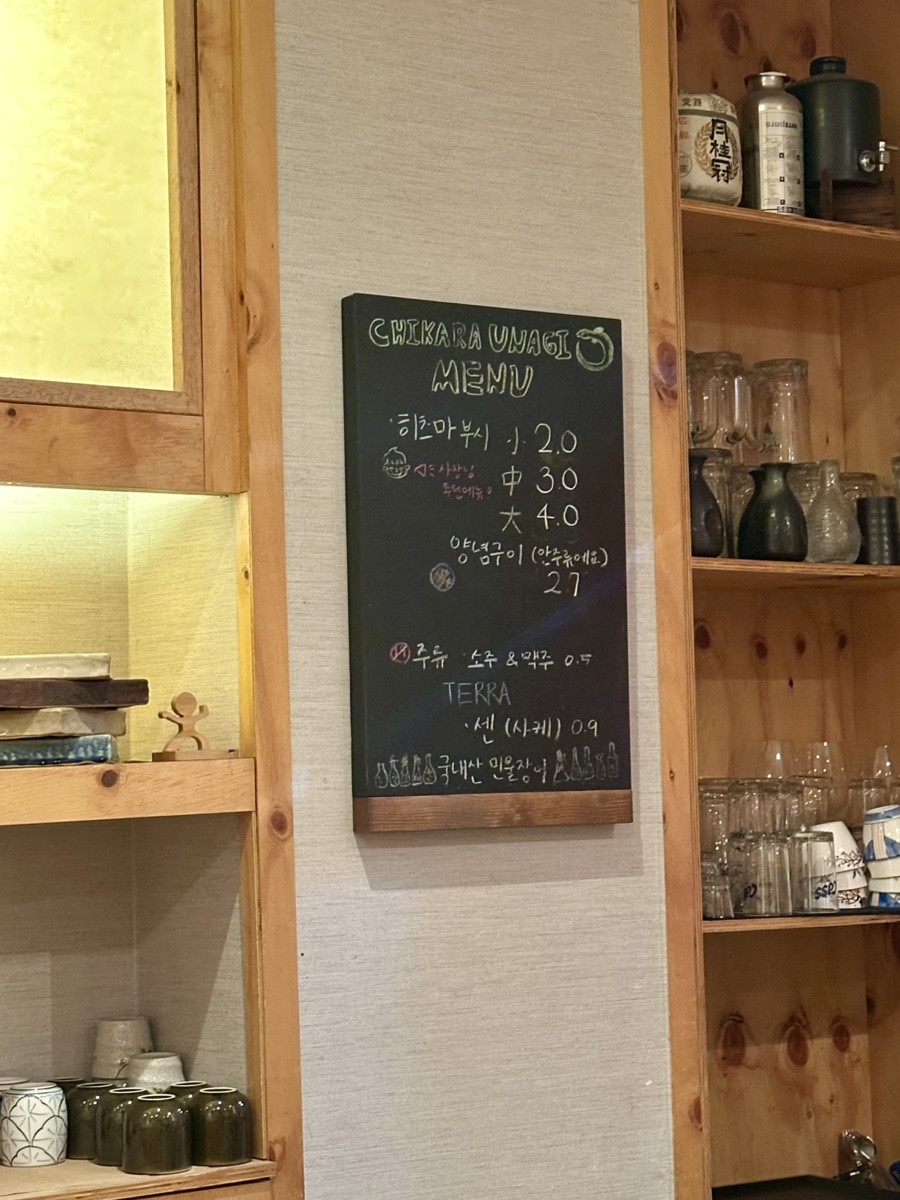 CHIKARA UNAGI
MENU
·히츠마부시 小 2.0
사장님 中 3.0
추천메뉴
大 4.0
양념구이 (안주류예요)
27
주류 ·소주 & 맥주 0.5
TERRA
·센 (사케) 0.9
국내산 민물장어
月桂冠
cass